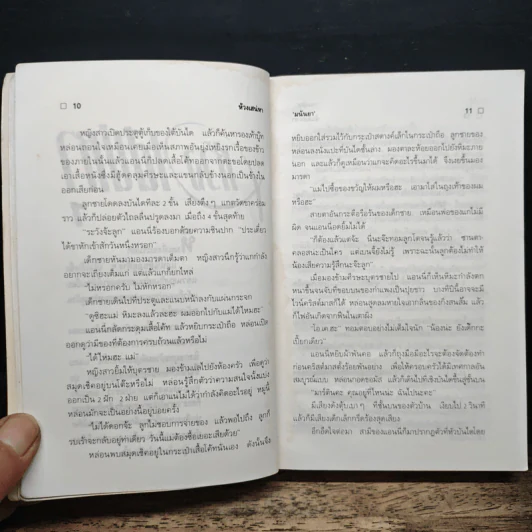 10 ห้วงเสน่หา
หญิงสาวเปิดประตูตู้เก็บของใต้บันได แล้วก็ค้นหารองเท้าบู๊ท
หล่อนถอนใจเหมือนเคยเมื่อเห็นสภาพอันยุ่งเหยิงรกเรื้อของข้าว
ของภายในนั้นแล้วแอนนี่ก็ปลดเสื้อโค้ทออกจากตะขอโดยปลด
เอาเสื้อหนังซึ่งมีฮู้ดคลุมศีรษะและแขนกลับข้างนอกเป็นข้างใน
ออกเสียก่อน
ลูกชายโดดลงบันไดทีละ 2 ขั้น เสียงดังตึงๆ แถมวัดขาคร่อม
ราว แล้วก็ปล่อยตัวไถลลื่นปรูดลงมา เมื่อถึง 4 ขั้นสุดท้าย
"ระวังจ๊ะลูก" แอนนี่ร้องบอกด้วยความชินปาก "ประเดี๋ยว
ได้ขาหักเข้าสักวันหนึ่งหรอก"
เด็กชายหันมามองมารดาเต็มตา หญิงสาวนึกรู้ว่าแกกำลัง
อยากจะเถียงเต็มแก่ แต่แล้วแกก็ยักไหล่
"ไม่หรอกครับ ไม่หักหรอก"
เด็กชายเดินไปที่ประตูและแนบหน้าลงกับแผ่นกระจก
"ดูซิฮะแม่ หิมะลงแล้วละฮะ ผมออกไปกับแม่ได้ไหมฮะ"
แอนนี่กลัดกระดุมเสื้อโค้ท แล้วหยิบกระเป๋าถือ หล่อนเปิด
ออกดูว่ามีของที่ต้องการครบถ้วนแล้วหรือไม่
"ได้ไหมฮะ แม่"
หญิงสาวยิ้มให้บุตรชาย มองข้ามแกไปยังห้องครัว เพื่อดูว่า
สมุดเช็คอยู่บนโต๊ะหรือไม่ หล่อนรู้สึกตัวว่าความสนใจนั้นแบ่ง
ออกเป็น 2 ฝัก 2 ฝ่าย แต่ก็เอาแน่ไม่ได้ว่ากำลังคิดอะไรอยู่ หมู่นี้
หล่อนมักจะเป็นอย่างนี้อยู่บ่อยครั้ง
"ไม่ได้ดอกจ้ะ ลูกไม่ชอบการจ่ายของ แล้วพอไปถึง ลูกก็
รบเร้าจะกลับอยู่ท่าเดียว วันนี้แม่ต้องซื้อเยอะเสียด้วย"
หล่อนพบสมุดเช็คอยู่ในกระเป๋าเสื้อโค้ทนั่นเอง ดังนั้นจึง
'มนันยา' 11
หยิบออกใส่รวมไว้กับกระเป๋าสตางค์เล็กในกระเป๋าถือ ลูกชายของ
หล่อนลงนั่งแปะที่บันไดขั้นล่าง มองตาละห้อยออกไปยังหิมะภาย
นอก และแล้วก็ดูเหมือนว่าแกจะคิดอะไรขึ้นมาได้ จึงเงยขึ้นมอง
มารดา
"แม่ไปซื้อของขวัญให้ผมหรือฮะ เอามาใส่ในถุงเท้าของผม
หรือฮะ"
สายตาอันกระตือรือร้นของเด็กชาย เหมือนพ่อของแกไม่มี
ผิด จนแอนนี่อดยิ้มไม่ได้
"ก็ต้องแล้วแต่จ้ะ นี่นะจ๊ะทอมลูกโตจนรู้แล้วว่า ซานตา
คลอสน่ะเป็นใคร แต่เบนจี้ยังไม่รู้ เพราะฉะนั้นลูกต้องไม่ทำให้
น้องเสียความรู้สึกนะจ๊ะ"
เมื่อมองข้ามศีรษะบุตรชายไป แอนนี่ก็เห็นหิมะกำลังตกหนัก
หนาขึ้นจนจับที่ขอบบนของกำแพงเป็นปุยขาว บางทีปีนี้อาจจะมี
ไวน์คริสต์มาสก็ได้ หล่อนสูดลมหายใจเอากลิ่นของกิ่งสนลิ้ม แล้ว
ก็ไฟอันเกิดจากฟืนในเตาผิง
"โอ.เค.ฮะ" ทอมตอบอย่างไม่เต็มใจนัก "น้องน่ะ ยังเด็กกะ
เปี๊ยกเดียว"
แอนนี่หยิบผ้าพันคอ แล้วก็ถุงมือมีอะไรจะต้องจัดต้องทำ
ก่อนคริสต์มาสตั้งร้อยพันอย่าง เพื่อให้ครอบครัวได้มีเทศกาลอัน
สมบูรณ์แบบ หล่อนกอดขอผมัส แล้วก็เดินไปที่เชิงบันไดขึ้นสู่ชั้นบน
"มาร์ติน! คุณอยู่ที่ไหนน่ะ ฉันไปนะคะ"
มีเสียงดังตุ้บเบาๆ ที่ชั้นบนของตัวบ้าน เงียบไป 2 วินาที
แล้วก็มีเสียงเด็กเล็กกรีดร้องสุดเสียง
อีกอึดใจต่อมา สามีของแอนนี่ก็มาปรากฏตัวที่หัวบันไดโดย